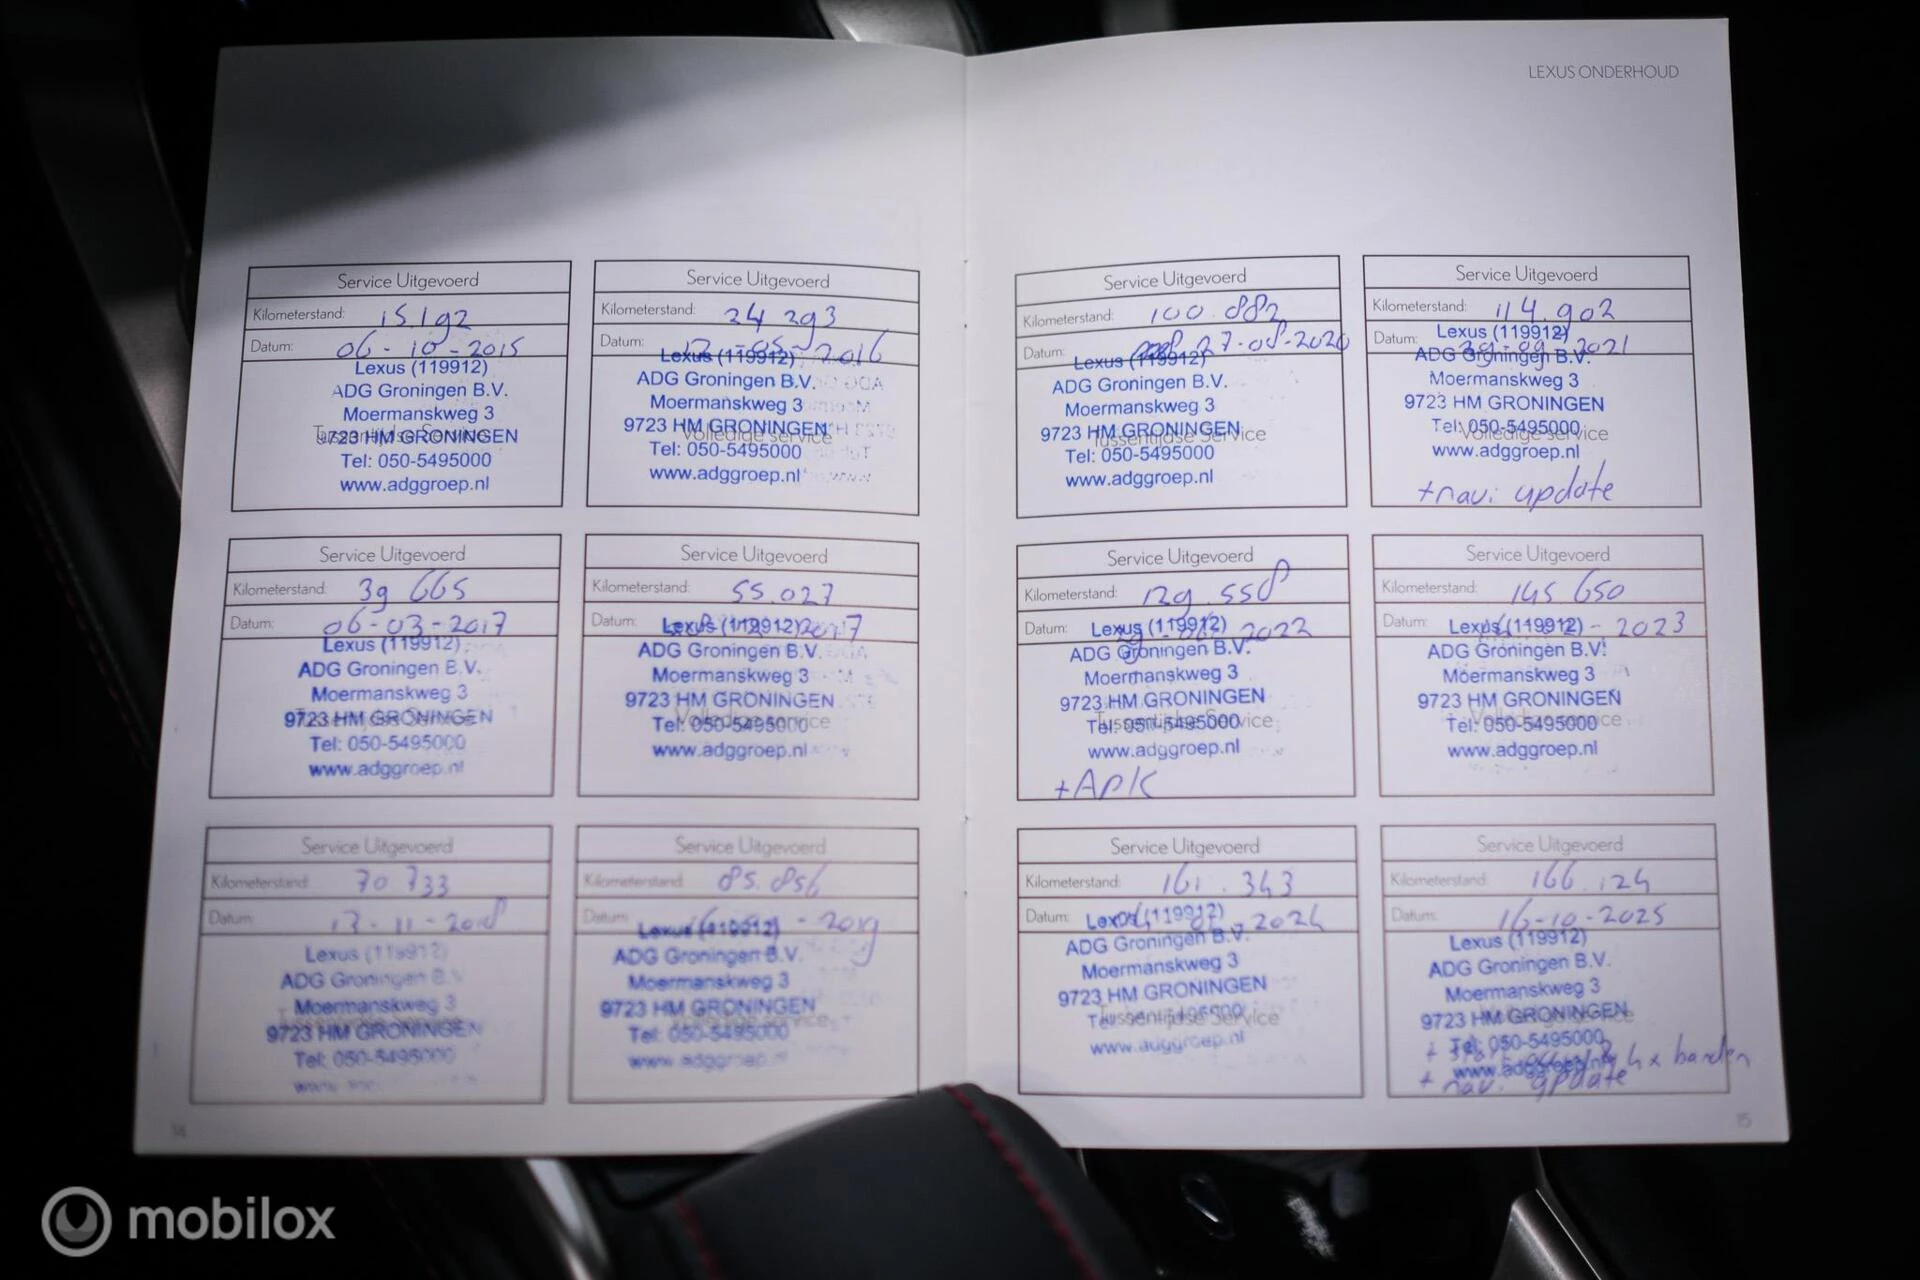 LEXUS ONDERHOUD
Service Uitgevoerd
Kilometerstand: 15.192
Datum: 06-10-2015
Lexus (119912)
ADG Groningen B.V.
Moermanskweg 3
9723 HM GRONINGEN
Tussentijdse Service
Tel: 050-5495000
www.adggroep.nl
Service Uitgevoerd
Kilometerstand: 24 293
Datum: 05-2016
Lexus (119912)
ADG Groningen B.V.
Moermanskweg 3
9723 HM GRONINGEN
Volledige service
Tel: 050-5495000
www.adggroep.nl
Service Uitgevoerd
Kilometerstand: 39 665
Datum: 06-03-2017
Lexus (119912)
ADG Groningen B.V.
Moermanskweg 3
9723 HM GRONINGEN
Tel: 050-5495000
www.adggroep.nl
Service Uitgevoerd
Kilometerstand: 55.027
Datum: 2017
Lexus (119912)
ADG Groningen B.V.
Moermanskweg 3
9723 HM GRONINGEN
Volledige service
Tel: 050-5495000
www.adggroep.nl
Service Uitgevoerd
Kilometerstand: 70 733
Datum: 13-11-2018
Lexus (119912)
ADG Groningen B.V.
Moermanskweg 3
9723 HM GRONINGEN
Tel: 050-5495000
Service Uitgevoerd
Kilometerstand: 85.856
Datum: 2019
Lexus (119912)
ADG Groningen B.V.
Moermanskweg 3
9723 HM GRONINGEN
Tel: 050-5495000
www.adggroep.nl
14
Service Uitgevoerd
Kilometerstand: 100.882
Datum: 27-08-2020
Lexus (119912)
ADG Groningen B.V.
Moermanskweg 3
9723 HM GRONINGEN
Tussentijdse Service
Tel: 050-5495000
www.adggroep.nl
Service Uitgevoerd
Kilometerstand: 114.902
Datum: 2021
Lexus (119912)
ADG Groningen B.V.
Moermanskweg 3
9723 HM GRONINGEN
Tel: 050-5495000
Volledige service
www.adggroep.nl
+navi update
Service Uitgevoerd
Kilometerstand: 129.558
Datum: 2022
Lexus (119912)
ADG Groningen B.V.
Moermanskweg 3
9723 HM GRONINGEN
Tussentijdse Service
Tel: 050-5495000
www.adggroep.nl
+APK
Service Uitgevoerd
Kilometerstand: 145 650
Datum: 2023
Lexus (119912)
ADG Groningen B.V.
Moermanskweg 3
9723 HM GRONINGEN
Volledige service
Tel: 050-5495000
www.adggroep.nl
Service Uitgevoerd
Kilometerstand: 161.343
Datum: 2024
Lexus (119912)
ADG Groningen B.V.
Moermanskweg 3
9723 HM GRONINGEN
Tussentijdse Service
www.adggroep.nl
Service Uitgevoerd
Kilometerstand: 166.124
Datum: 16-10-2025
Lexus (119912)
ADG Groningen B.V.
Moermanskweg 3
9723 HM GRONINGEN
Tel: 050-5495000
4 x banden
www.adggroep.nl
+ navi update
15
mobilox